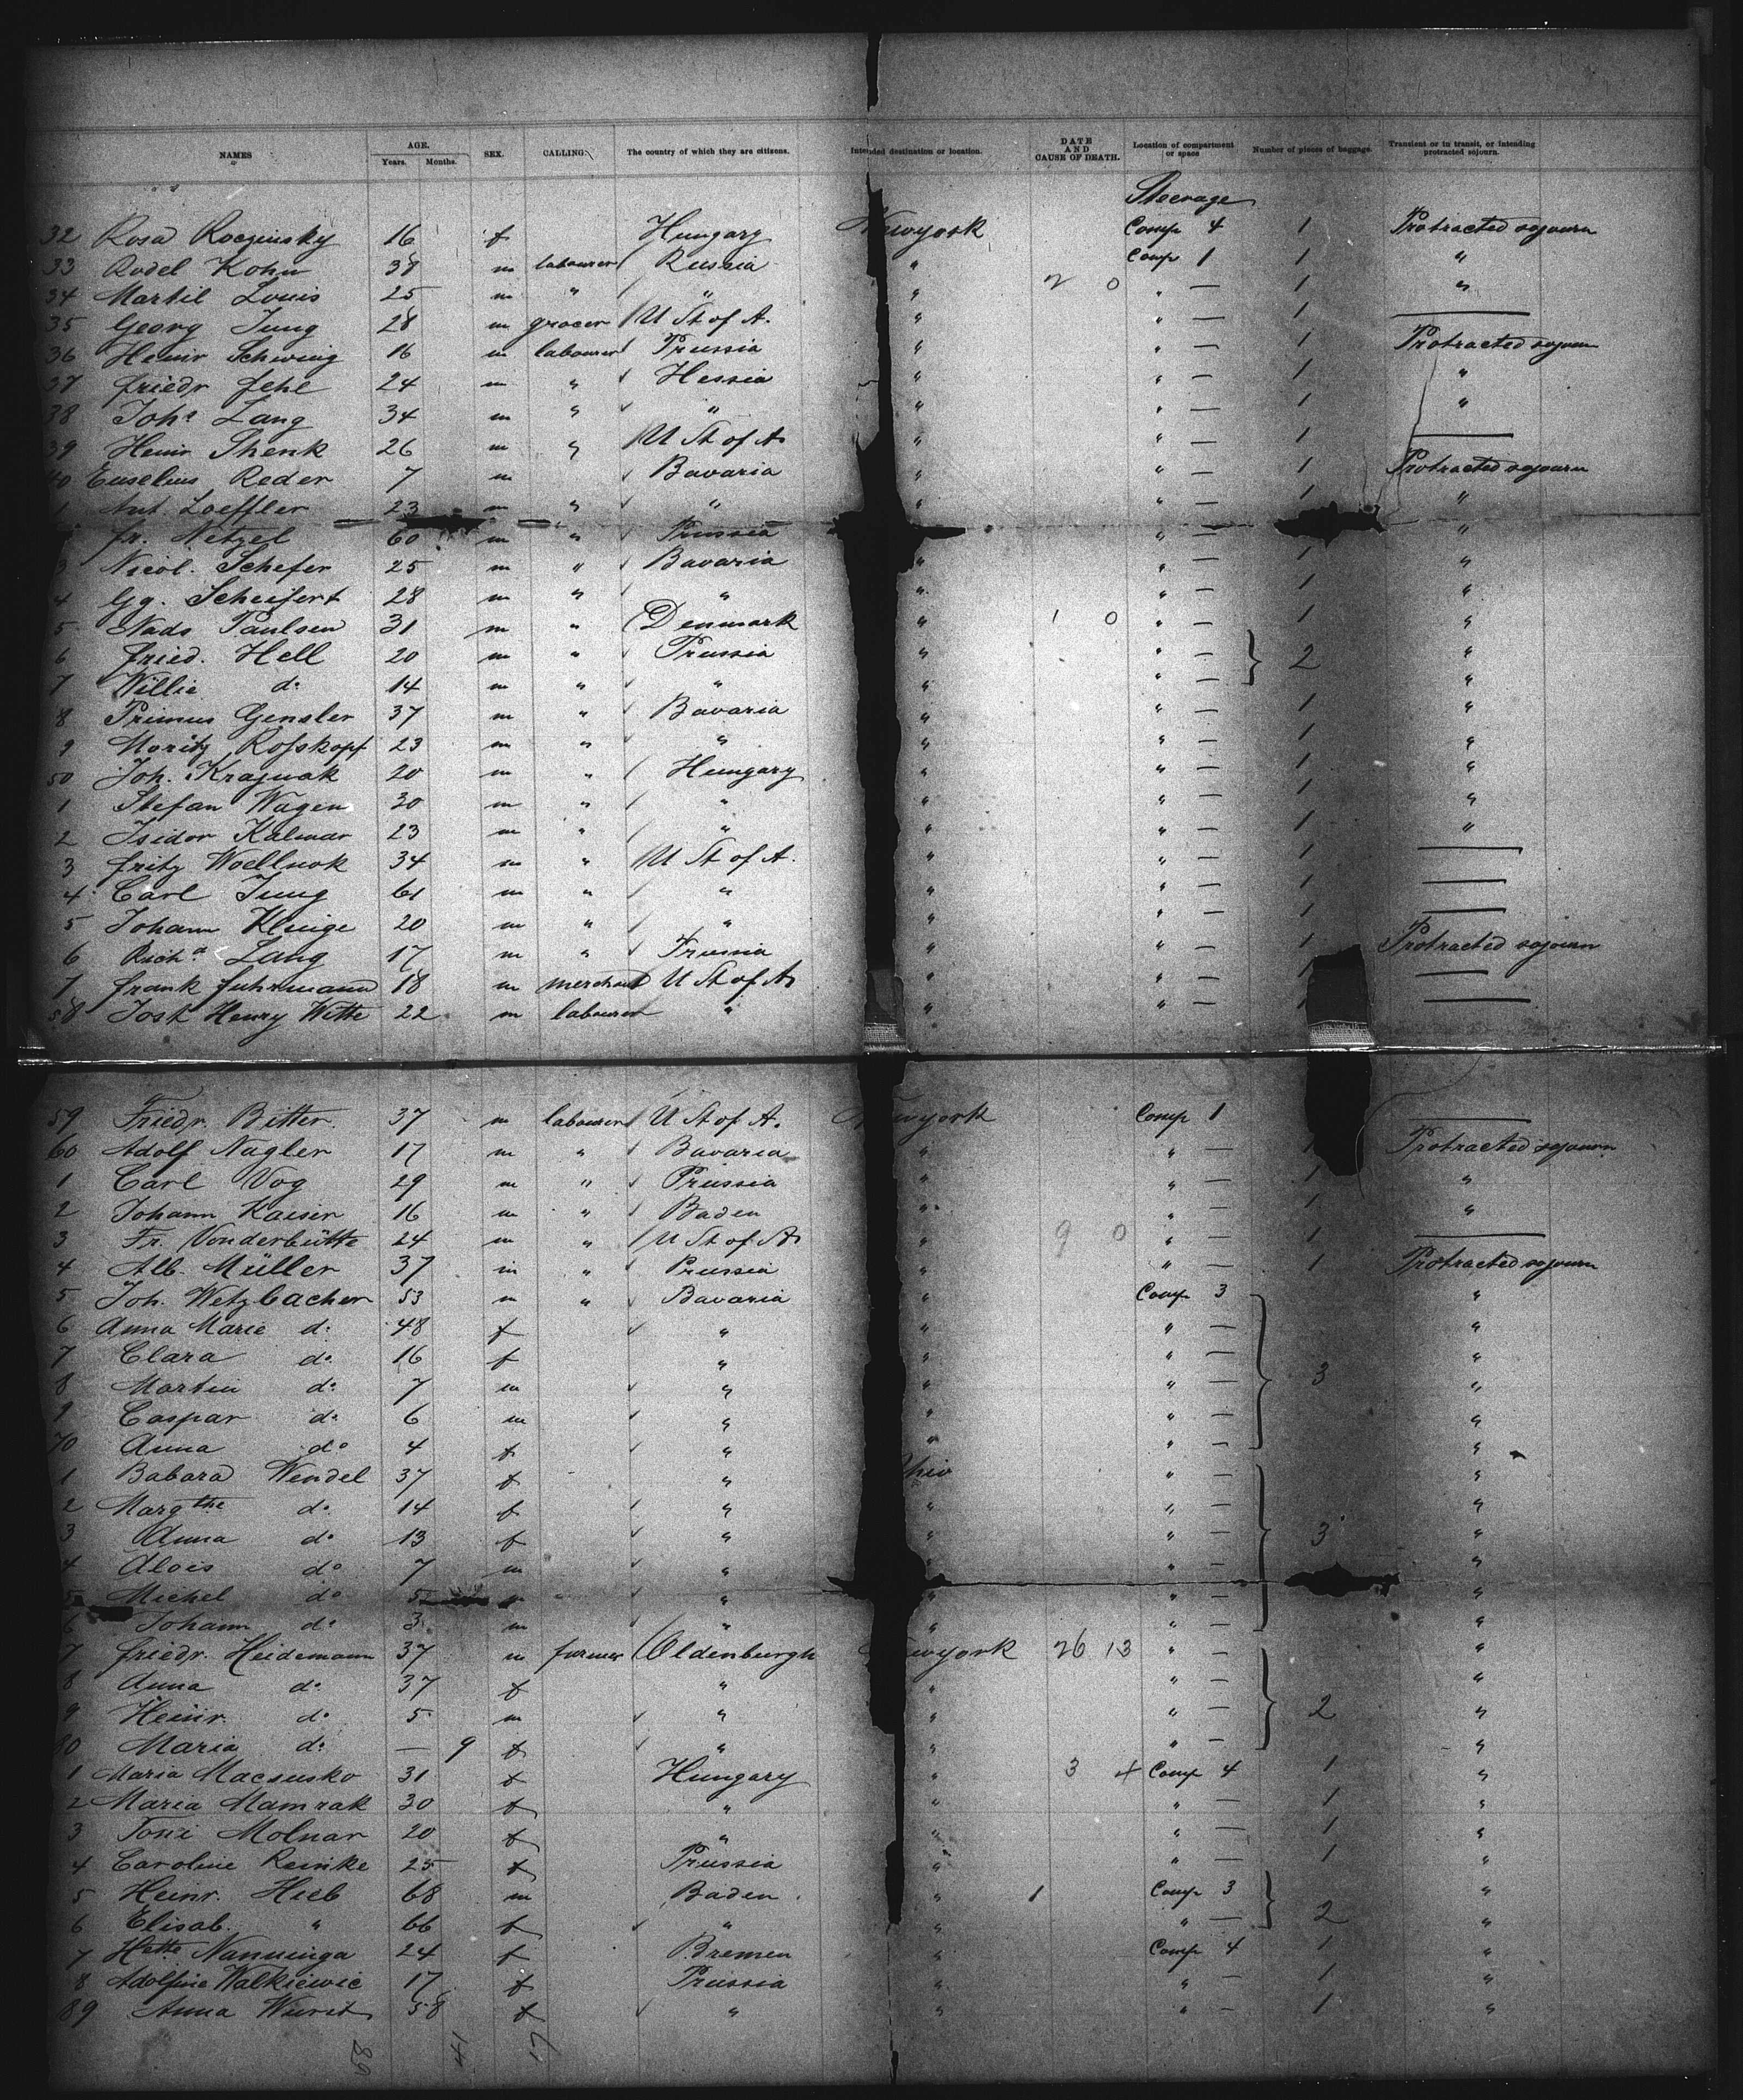 NAMES AGE. Years. Months. SEX. CALLING. The country of which they are citizens. Intended destination or location. DATE AND CAUSE OF DEATH. Location of compartment or space Number of pieces of baggage. Transient or in transit, or intending protracted sojourn.
Steerage
32 Rosa Roczinsky 16 f Hungary Newyork Comp 4 1 Protracted sojourn
33 Rodel Kohn 38 m labourer Russia " Comp 1 1 "
34 Martil Louis 25 m " " " 2 0 " — 1 "
35 Georg Jung 28 m grocer U St of A. " " — 1 —
36 Heinr Schwing 16 m labourer Prussia " " — 1 Protracted sojourn
37 Friedr Jehl 24 m " Hessia " " — 1 "
38 Joh. Lang 34 m " " " " — 1 "
39 Heinr Shenk 26 m " U St of A " " — 1 —
40 Euselius Reder 7 m Bavaria " " — 1 Protracted sojourn
1 Ant. Loeffler 23 m " " " " — 1 "
Fr. Netzel 60 m " Prussia " — "
3 Nicol. Schefer 25 m " Bavaria " " — 1 "
4 Gg. Scheifert 28 m " " " " — 1 "
5 Nads Paulsen 31 m " Denmark " 1 0 " — 1 "
6 Fried. Hell 20 m " Prussia " " — 2 "
7 Willie do 14 m " " " " — "
8 Primus Gensler 37 m " Bavaria " " — 1 "
9 Moritz Rosskopf 23 m " " " " — 1 "
50 Joh. Krajnak 20 m " Hungary " " — 1 "
1 Stefan Wagen 30 m " " " " — 1 "
2 Isidor Kalmar 23 m " " " " — 1 "
3 Fritz Woellnok 34 m " U St of A. " " — 1 —
4 Carl Jung 61 m " " " " — 1 —
5 Johann Kluge 20 m " " " " — 1 —
6 Richd Lang 17 m " Prussia " " — 1 Protracted sojourn
7 Frank Fuhrmann 18 m merchant U St of A " " — 1 —
58 Jost Henry Witte 22 m labourer " " " — —
59 Friedr. Bitter. 37 m labourer U St of A. Newyork Comp 1 —
60 Adolf Nagler 17 m " Bavaria " " — 1 Protracted sojourn
1 Carl Vog 29 m " Prussia " " — 1 "
2 Johann Kaiser 16 m " Baden " " — 1 "
3 Fr. Vonderbütte 24 m " U St of A " 9 0 " — 1 —
4 Alb. Müller 37 m " Prussia " " — 1 Protracted sojourn
5 Joh. Wetzbacher 53 m " Bavaria " Comp 3 "
6 Anna Marie do 48 f " " " — "
7 Clara do 16 f " " " — 3 "
8 Martin do 7 m " " " — "
9 Caspar do 6 m " " " — "
70 Anna do 4 f " " " — "
1 Babara Wendel 37 f " Ohio " — "
2 Margthe do 14 f " " " — "
3 Anna do 13 f " " " — 3 "
4 Alois do 7 m " " " — "
5 Michel do 5 m " " " — "
6 Johann do 3 m " " " — "
7 Friedr. Heidemann 37 m farmer Oldenburgh Newyork 26 13 " — "
8 Anna do 37 f " " " — "
9 Heinr. do 5 m " " " — 2 "
80 Maria do — 9 f " " " — "
1 Maria Macsusko 31 f Hungary " 3 4 Comp 4 1 "
2 Maria Mamrak 30 f " " " — 1 "
3 Toni Molnar 20 f " " " — 1 "
4 Caroline Reinke 25 f Prussia " " — 1 "
5 Heinr. Hieb 68 m Baden " 1 Comp 3 2 "
6 Elisab. " 66 f " " " — "
7 Hette Nanninga 24 f Bremen " Comp 4 1 "
8 Adolfine Walkiewic 17 f Prussia " " — 1 "
89 Anna Wurst 58 f " " " — 1 "
89